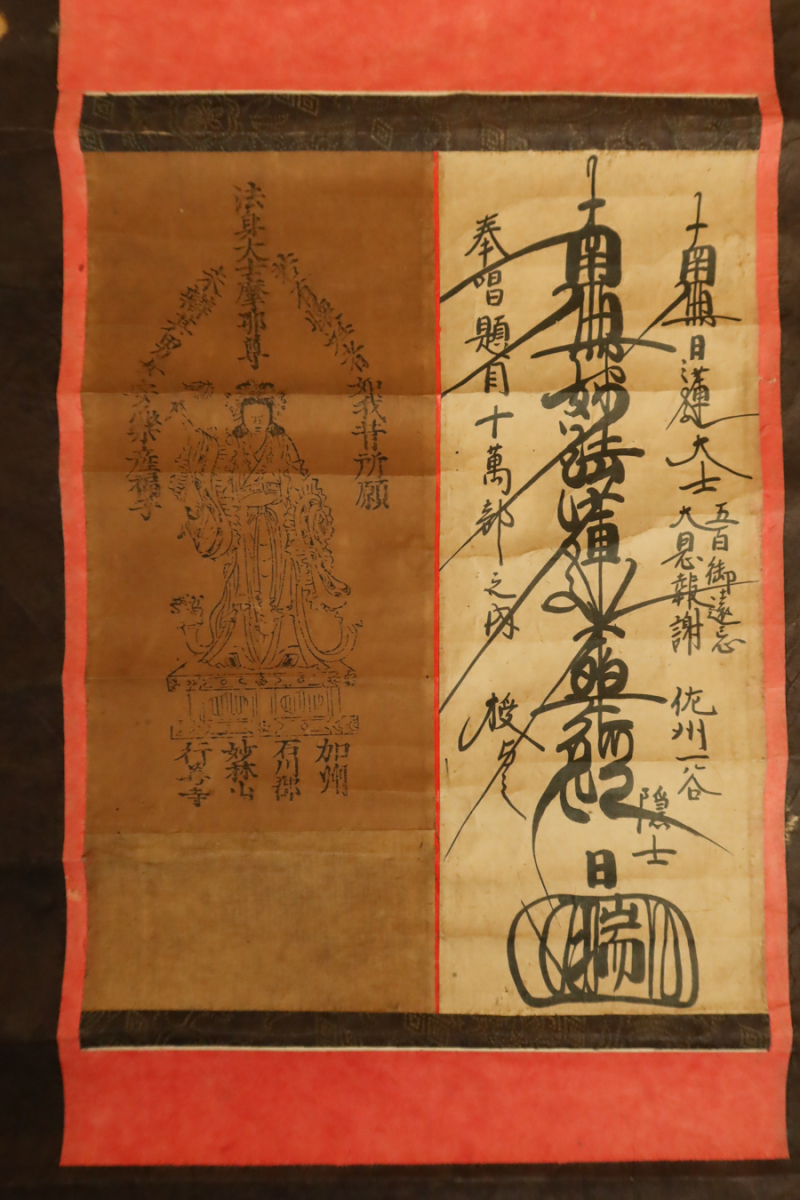 南無日蓮大士
五百御遠忌
大恩報謝
佐州一谷
隠士
南無妙法蓮華經
日瑞
奉唱題目十萬部之内 授与之
法身大士摩耶尊
如我昔所願
安樂産福子
加州
石川郡
妙林山
行善寺